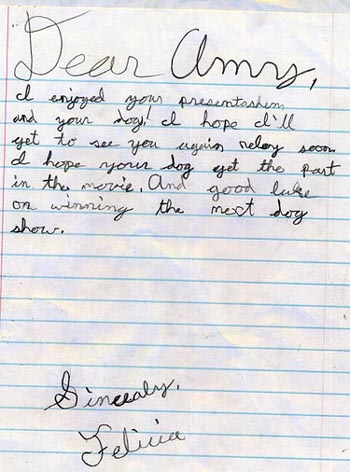 Dear Amy,
I enjoyed your presentashen
and your dog! I hope I'll
get to see you again relay soon
I hope your dog get the part
in the movie. And good luke
on winning the next dog
show.
Sincealy,
Felicia